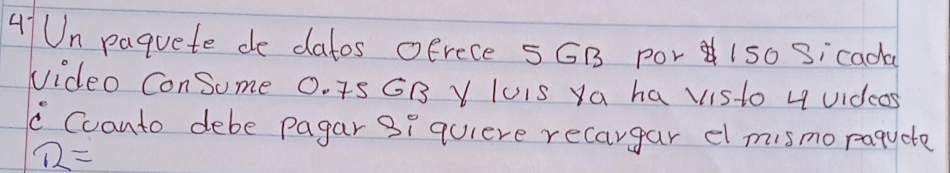 4- Un paquete de datos ofrece 5 GB por $150 Si cada
video Consume 0.75 GB y luis ya ha visto 4 videos
¿ Cuanto debe pagar si quiere recargar el mismo paquete
R=